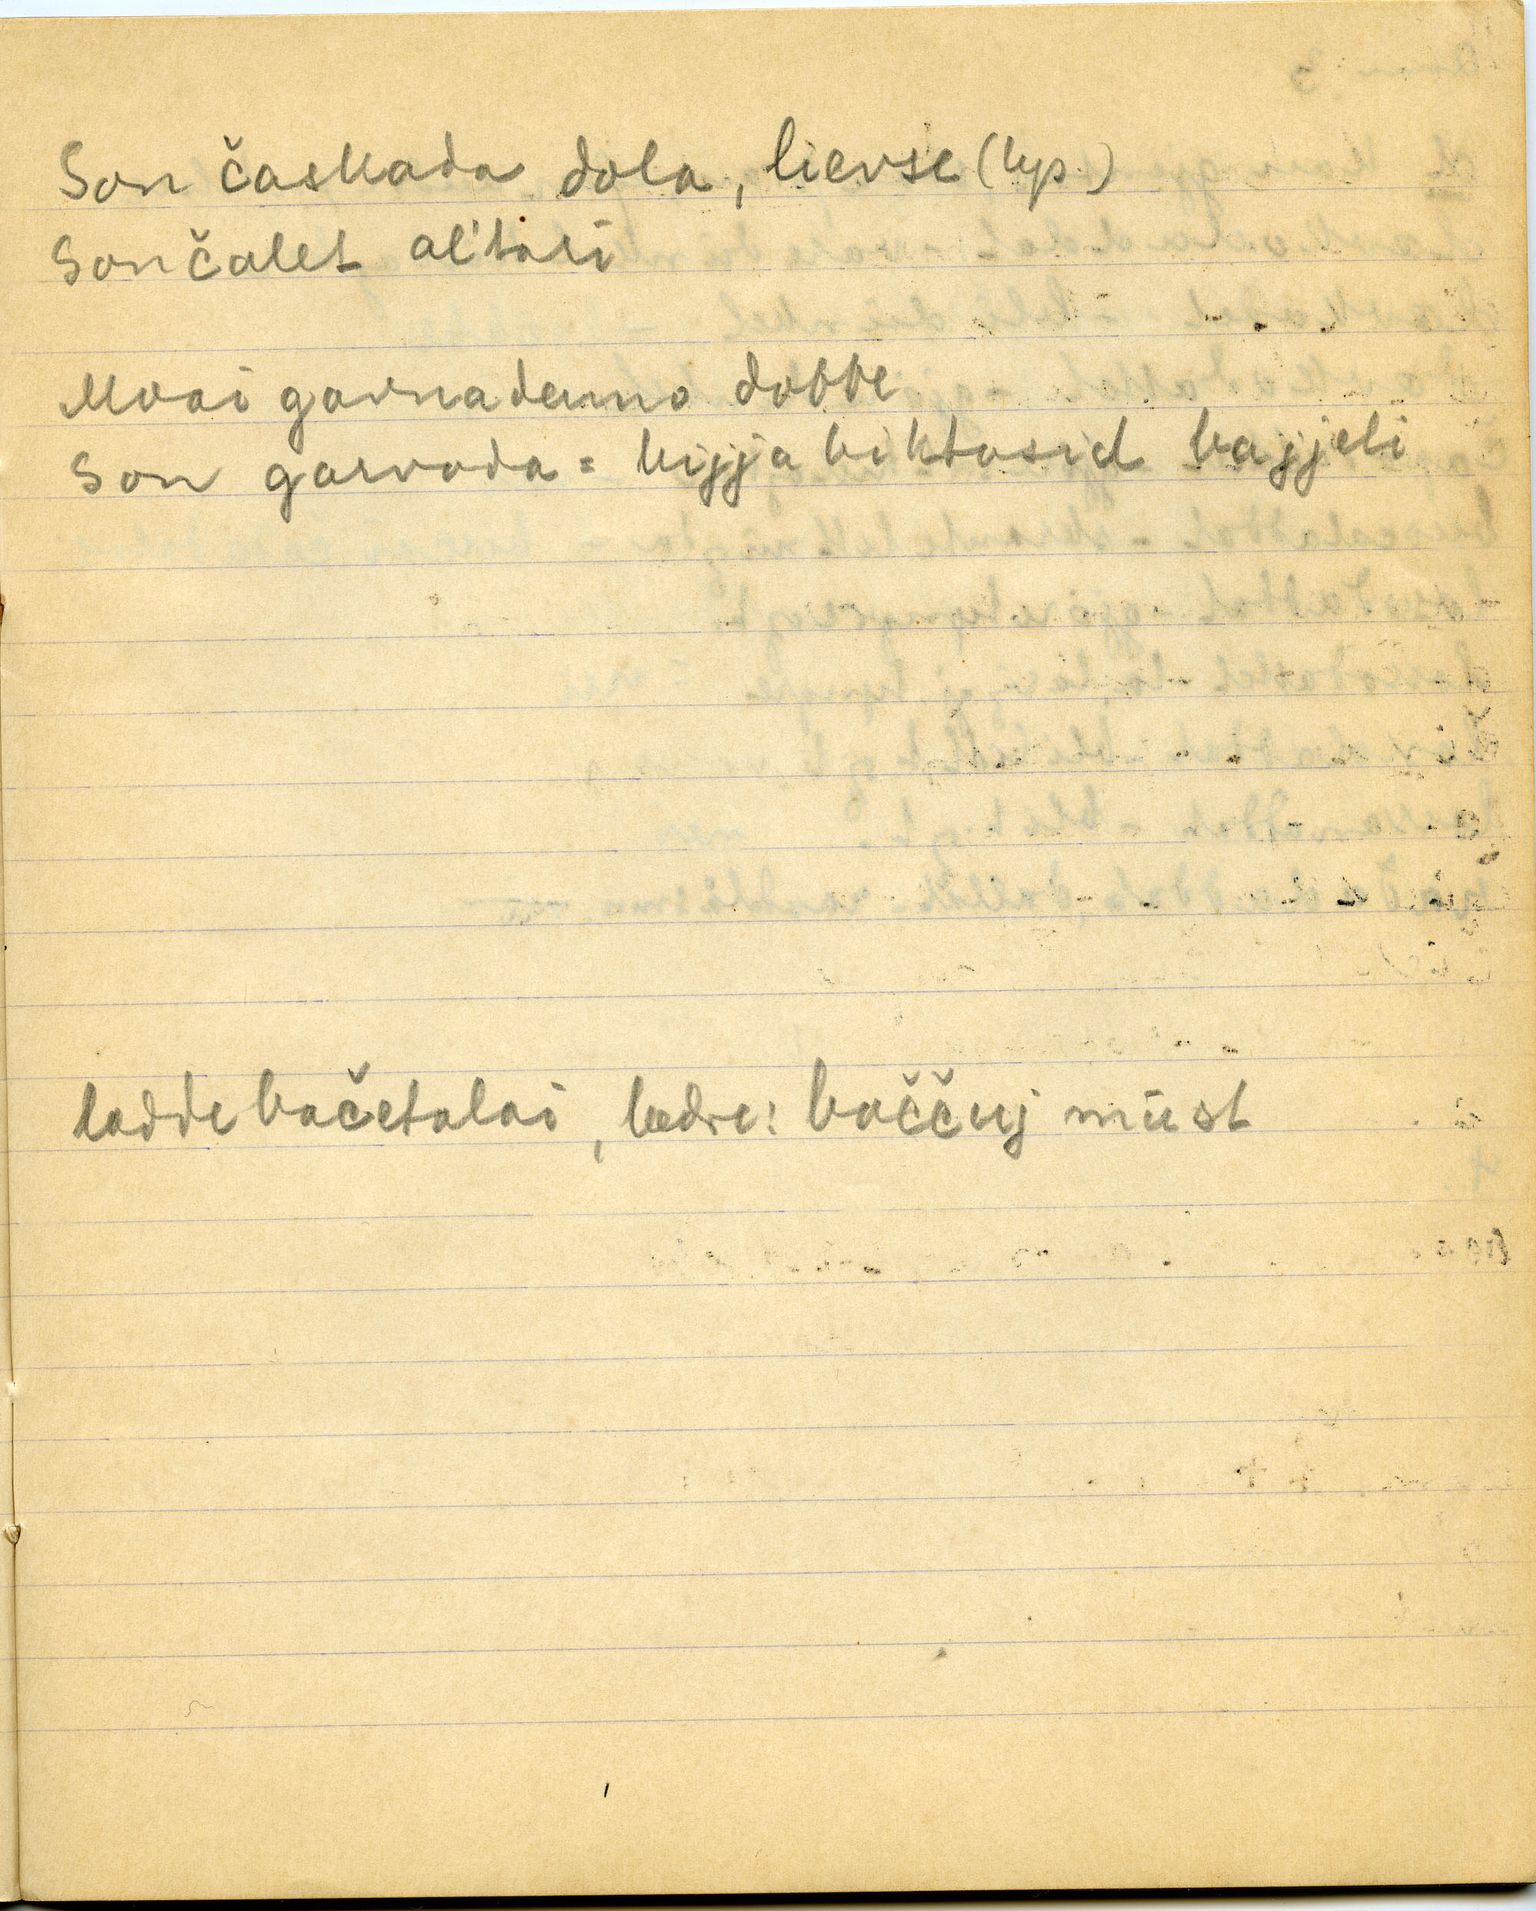 Son časkada dola, lievse (lys)
Son čalet al'tari
Moai garnadeumo dobbe
Son garvoda = bijja biktasid bajjeli
lodde bačetalai, bedre: baččuj müst